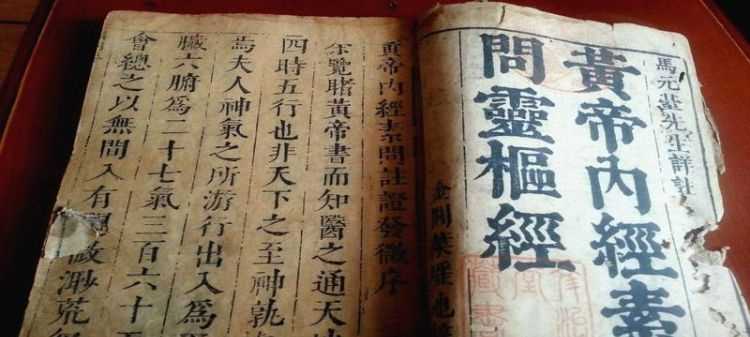 馬元臺先生詳註
黃帝內經素
問靈樞經
黃帝內經素問註證發微序
余覽睹黃帝書而知醫之通天
四時五行也非天下之至神孰
焉夫人神氣之所游行出入爲
臟六腑爲二十七氣三百六十
會總之以無間入有間微渺荒